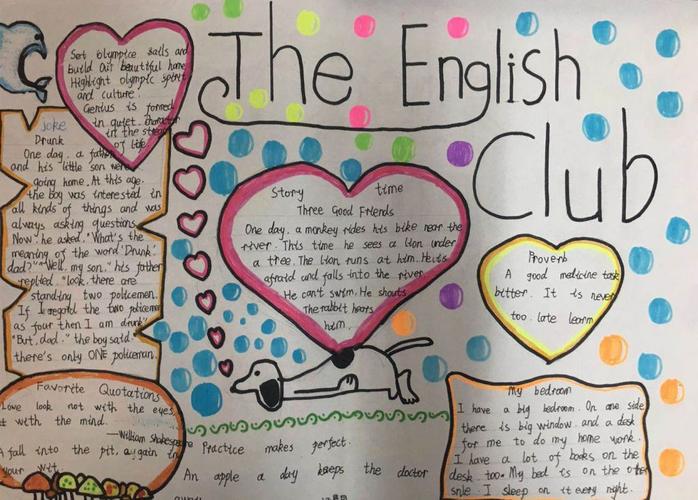 The English
Club
Set Olympic sails and
build Our beautiful home
Highlight olympic spirit
and culture.
Genius is formed
in quiet.
in the stream
of life
joke
Drunk
One day. a father
and his little son were
going home. At this age.
the boy was interested in
all kinds of things and was
always asking questions.
Now. he asked. "What's the
meaning of the word 'Drunk'
dad?" "Well, my son." his father
replied. "look. there are
standing two policemen.
If I regard the two policemen
as four then I am drunk."
"But, dad." the boy said.
"there's only ONE policeman.
Story time
Three Good Friends
One day. a monkey rides his bike near the
river. This time he sees a lion under
a tree. The lion runs at him. He is
afraid and falls into the river
He can't swim. He shouts
The rabbit hears
him.
Proverb
A good medicine task
bitter. It is never
too late learn
Favorite Quotations
Love look not with the eyes.
t with the mind.
—William Shakespeare
A fall into the pit, a gain in
your wit.
Practice makes perfect.
An apple a day keeps the doctor
My bedroom
I have a big bedroom. On one side
there is big window. and a desk
for me to do my home work.
I have a lot of books on the
desk. too. My bed is on the other
side. I sleep on it every night.